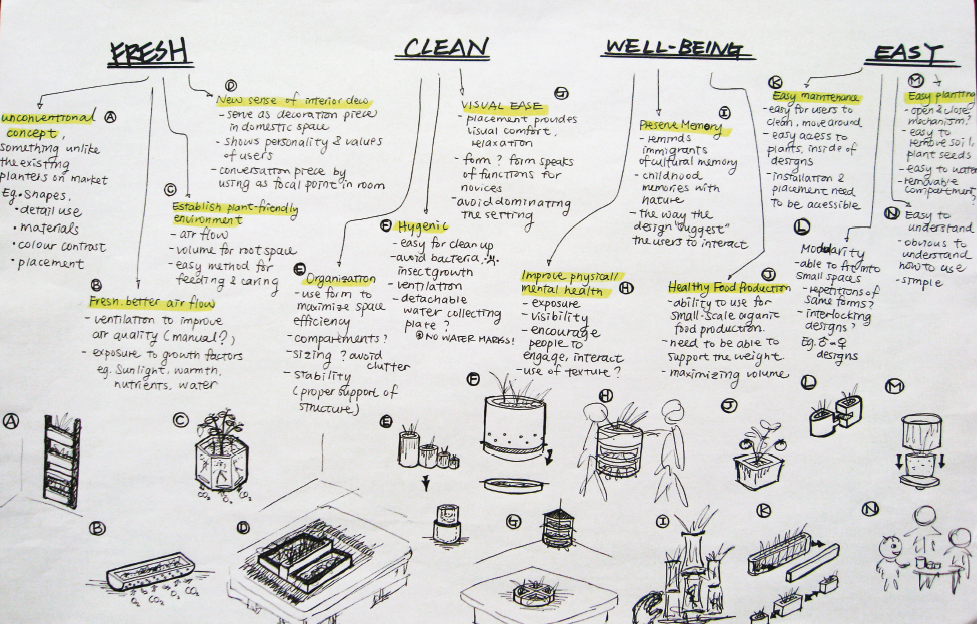 FRESH
CLEAN
WELL-BEING
EASY
A
unconventional
concept,
something unlike
the existing
planters on market
Eg. Shapes,
• detail use
• materials
• colour contrast
• placement
B
Fresh, better air flow
- ventilation to improve
air quality (manual?)
- exposure to growth factors
eg. Sunlight, warmth,
nutrients, water
C
Establish plant-friendly
environment
- air flow
- volume for root space
- easy method for
feeding & caring
D
New sense of interior deco
- serve as decoration piece
in domestic space
- shows personality & values
of users
- conversation piece by
using as focal point in room
E
Organization
- use form to
maximize space
efficiency
- compartments?
- sizing? avoid
clutter
- stability
(proper support of
structure)
F
Hygenic
- easy for clean up
- avoid bacteria,
insect growth
- ventilation
- detachable
water collecting
plate?
NO WATER MARKS!
G
VISUAL EASE
- placement provides
visual comfort,
relaxation
- form? form speaks
of functions for
novices
- avoid dominating
the setting
H
Improve physical/
mental health
- exposure
- visibility
- encourage
people to
engage, interact
- use of texture?
I
Preserve Memory
- reminds
immigrants
of cultural memory
- childhood
memories with
nature
- the way the
design "suggest"
the users to interact
J
Healthy Food Production
- ability to use for
small-scale organic
food production.
- need to be able to
support the weight
- maximizing volume
K
Easy maintenance
- easy for users to
clean, move around
- easy access to
plants, inside of
designs
- installation &
placement need
to be accessible
L
Modularity
- able to fit into
small spaces
- repetitions of
same forms?
- interlocking
designs?
Eg. ♂→♀
designs
M
Easy planting
- open & close
mechanism?
- easy to
remove soil,
plant seeds
- easy to water
- removable
compartment?
N
Easy to
understand
- obvious to
understand
how to use
- simple
A
B
CO₂ O₂ CO₂ O₂ CO₂
C
CO₂ O₂ CO₂
D
E
F
G
H
I
J
K
L
M
N